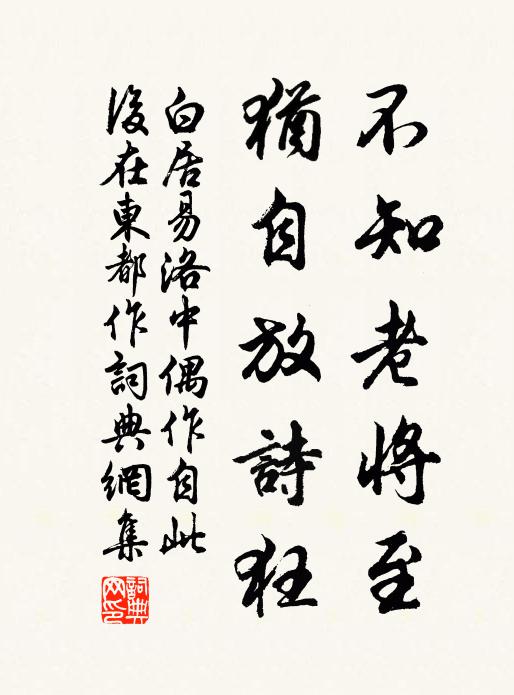 不知老將至
猶自放詩狂
白居易洛中偶作自此
後在東都作詞典網集
詞典網印